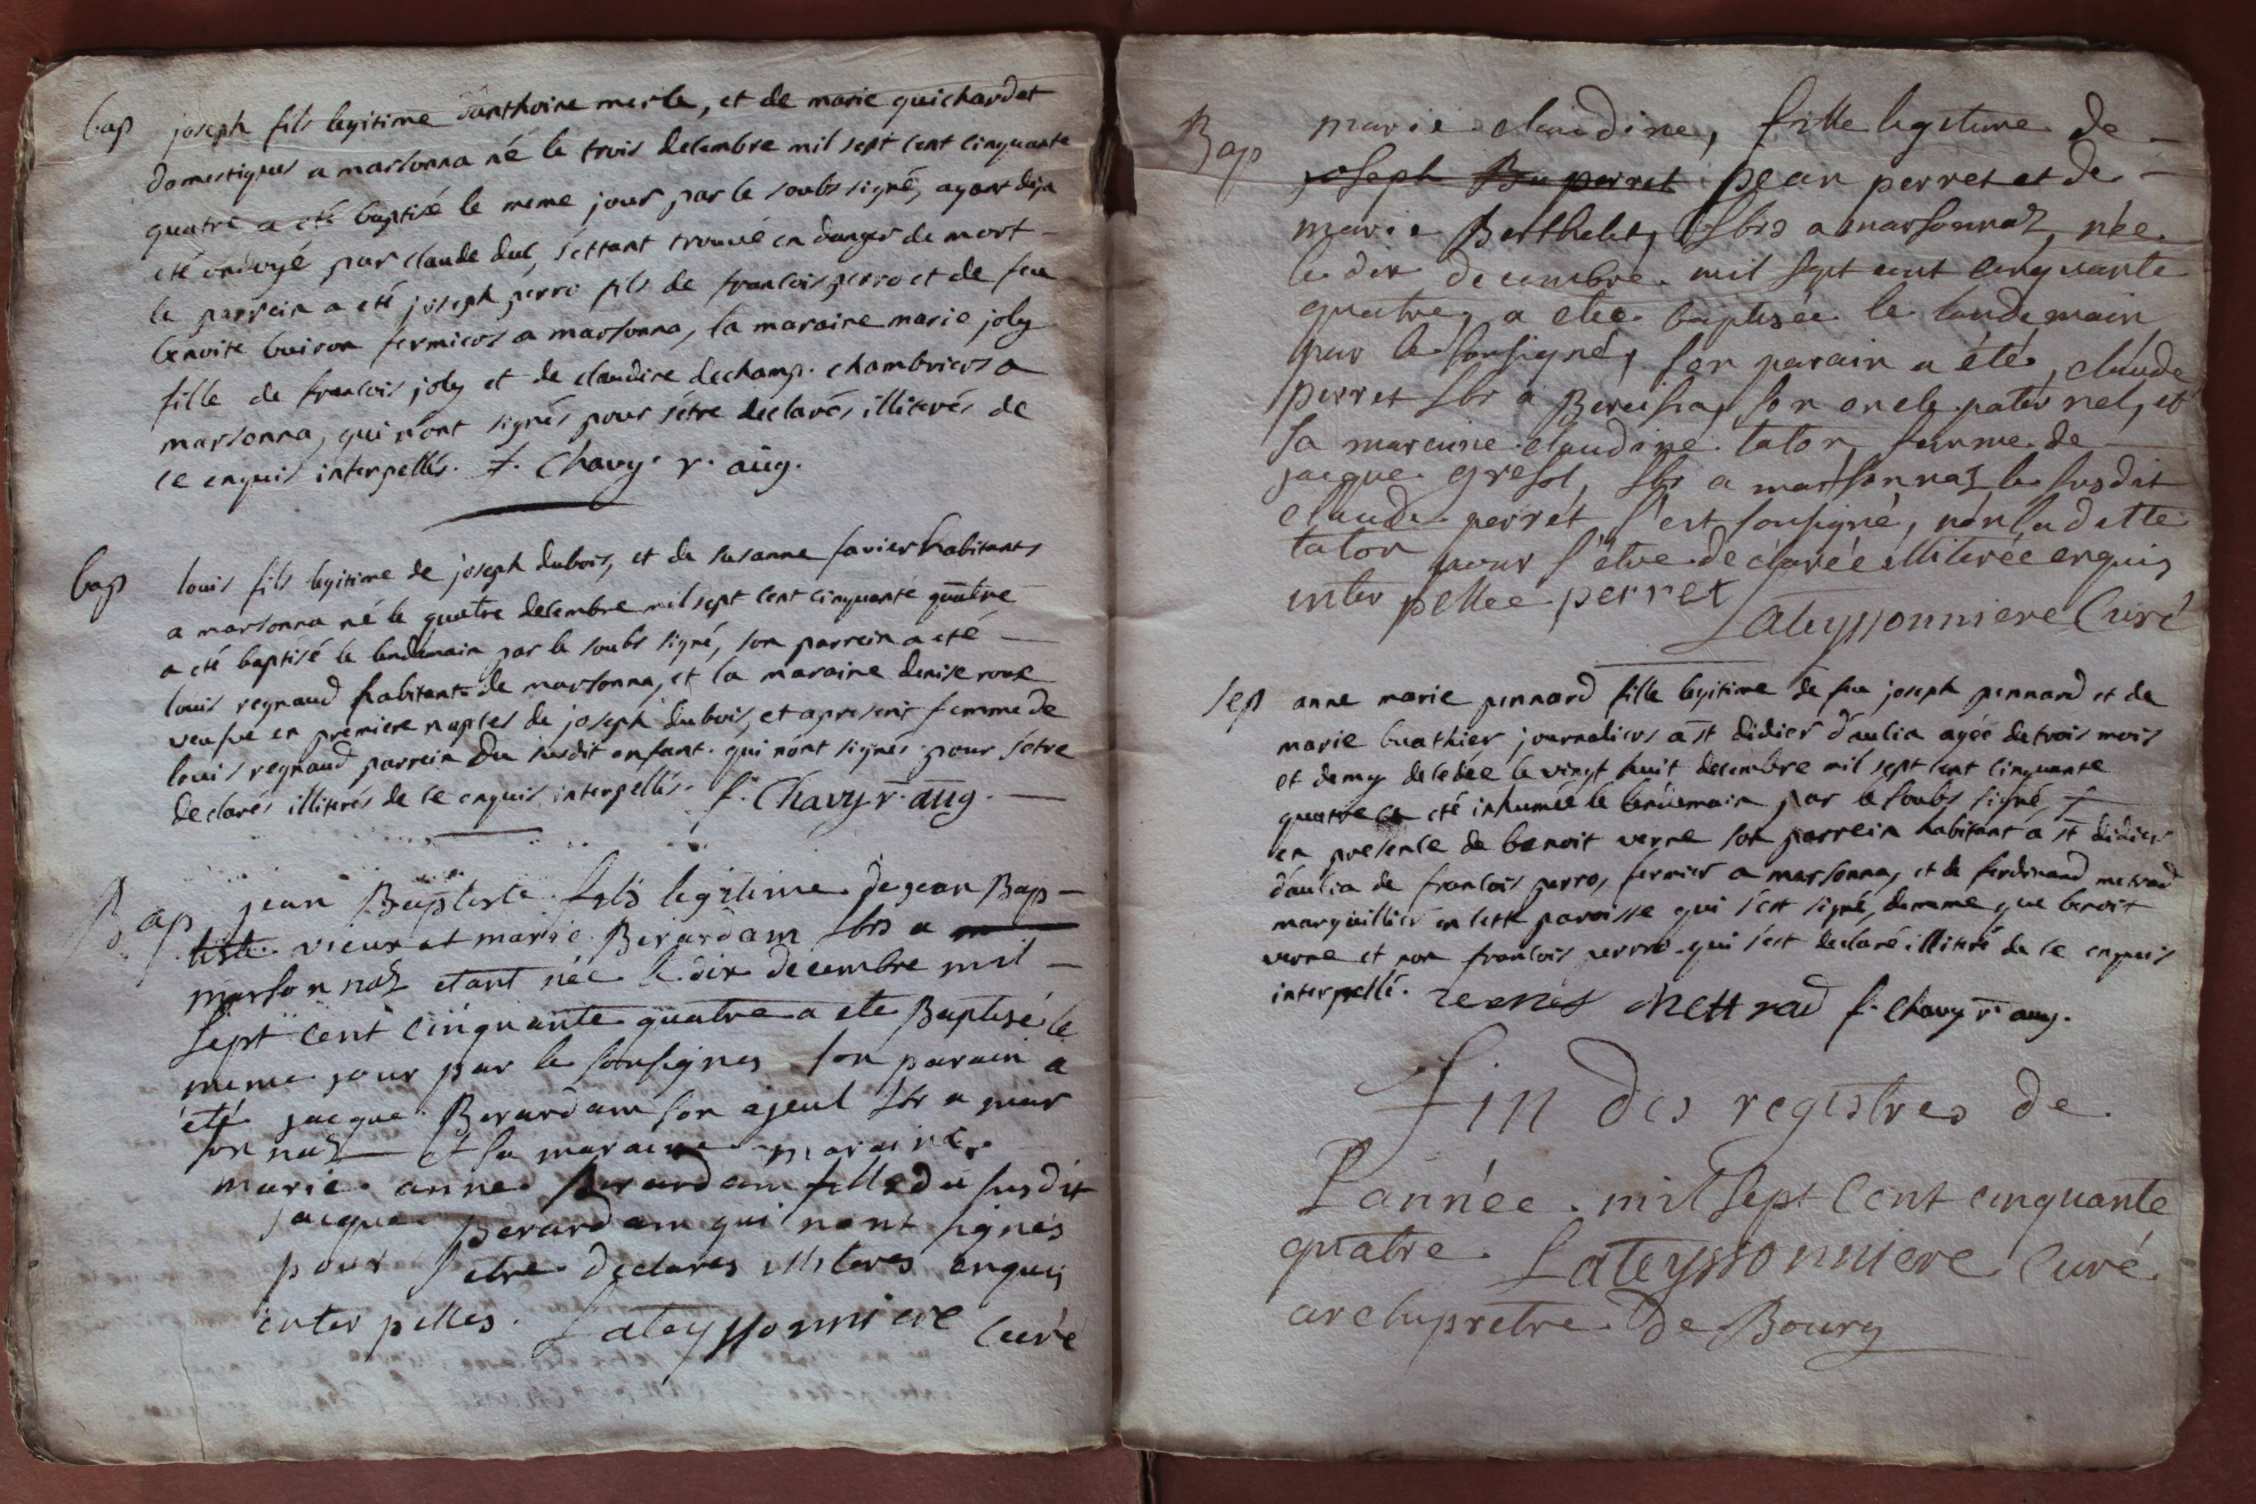 bap joseph fils legitime d'anthoine merle, et de marie guichardet
domestiques a marsonna né le trois decembre mil sept cent cinquante
quatre a eté baptisé le meme jour par le soubs signé, ayant deja
eté ondoyé par claude dul, s'ettant trouvé en danger de mort –
le parrein a eté joseph perro fils de francois perro et de feu
benoite buiron fermiers a marsonna, la maraine marie joly
fille de francois joly et de claudine dechamp. chambriers a
marsonna, qui n'ont signés pour s'etre declarés illiterés de
ce enquis interpellés. f. Chavy. r. aug.
bap louis fils legitime de joseph dubois, et de susanne favier habitants
a marsonna né le quatre decembre mil sept cent cinquante quatre
a eté baptisé le lendemain par le soubs signé, son parrein a eté —
louis regnaud habitant de marsonna, et la maraine denise roux
veufve en premiere noptes de joseph dubois, et apresent femme de
louis regnaud parrein du susdit enfant. qui n'ont signés pour s'etre
declarés illiterés de ce enquis interpellés. f. Chavy. r. aug. —
Bap jean Baptiste fils legitime de jean Bap–
tiste vieux et marie Berardam lbrs a m
marsonnaz etant née le dix decembre mil –
sept cent cinquante quatre a ete Baptisé le
meme jour par le sousignes son parain a
été jacque Berardam son ajeul lbr a mar
sonnaz et sa maraine maraine
marie anne Berardam fille du susdit
jacque Berardam qui n'ont signés
pour s'etre declares illiteres enquis
interpelles. Lateyssonniere Curé
Bap marie claudine, fille legitime de –
joseph Bu perret jean perret et de –
marie Berthelet, lbrs a marsonnaz, née
le dix decembre mil sept cent cinquante
quatre, a etée baptisée le landemain
par le sousigné, son parain a été, claude
perret lbr a Bereisia, son oncle paternel, et
sa maraine claudine tator femme de
jacque gresol, lbr a marsonnaz le susdit
claude perret s'est sousigné, non ladette
tator pour s'etre declarée illiterée enquis
interpellee perret
Lateyssonniere Curé
sep anne marie pennard fille legitime de feu joseph pennard et de
marie buathier journaliers a st didier d'aulia agée de trois mois
et demy decedée le vingt huit decembre mil sept cent cinquante
quatre a eté inhumée le lendemain par le soubs signé,
en presence de benoit verne son parrein habitant a st didier
d'aulia de francois perro, fermier a marsonna, et de ferdinand metrad
marguillier en cette paroisse qui s'est signé, dememe que benoit
verne et non francois perro. qui s'est declaré illiteré de ce enquis
interpellé. Mettrad f. Chavy r. aug.
Fin des registres de
L'année mil sept cent cinquante
quatre. Lateyssonniere Curé
archipretre de Bourg